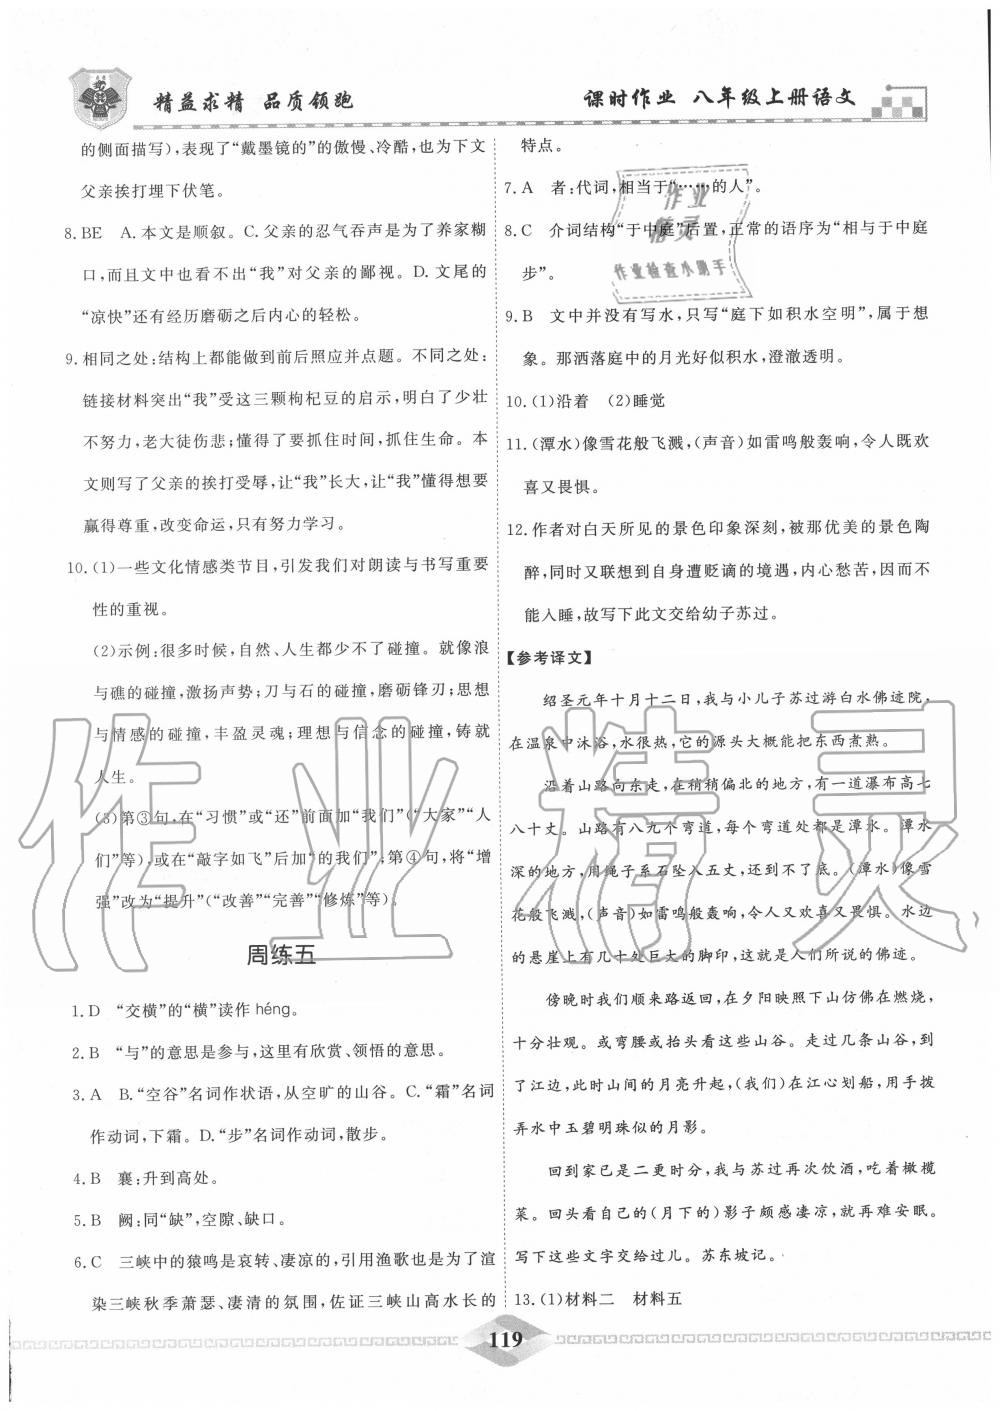 精益求精 品质领跑
课时作业 八年级上册语文
的侧面描写),表现了“戴墨镜的”的傲慢、冷酷,也为下文
父亲挨打埋下伏笔。
8. BE A.本文是顺叙。C.父亲的忍气吞声是为了养家糊
口,而且文中也看不出“我”对父亲的鄙视。D.文尾的
“凉快”还有经历磨砺之后内心的轻松。
9. 相同之处:结构上都能做到前后照应并点题。不同之处:
链接材料突出“我”受这三颗枸杞豆的启示,明白了少壮
不努力,老大徒伤悲;懂得了要抓住时间,抓住生命。本
文则写了父亲的挨打受辱,让“我”长大,让“我”懂得想要
赢得尊重,改变命运,只有努力学习。
10. (1)一些文化情感类节目,引发我们对朗读与书写重要
性的重视。
(2)示例:很多时候,自然、人生都少不了碰撞。就像浪
与礁的碰撞,激扬声势;刀与石的碰撞,磨砺锋刃;思想
与情感的碰撞,丰盈灵魂;理想与信念的碰撞,铸就
人生。
(3)第③句,在“习惯”或“还”前面加“我们”(“大家”“人
们”等),或在“敲字如飞”后加“的我们”;第④句,将“增
强”改为“提升”(“改善”“完善”“修炼”等)。
周练五
1. D “交横”的“横”读作 héng。
2. B “与”的意思是参与,这里有欣赏、领悟的意思。
3. A B.“空谷”名词作状语,从空旷的山谷。C.“霜”名词
作动词,下霜。D.“步”名词作动词,散步。
4. B 襄:升到高处。
5. B 阙:同“缺”,空隙、缺口。
6. C 三峡中的猿鸣是哀转、凄凉的,引用渔歌也是为了渲
染三峡秋季萧瑟、凄清的氛围,佐证三峡山高水长的
特点。
7. A 者:代词,相当于“……的人”。
8. C 介词结构“于中庭”后置,正常的语序为“相与于中庭
步”。
9. B 文中并没有写水,只写“庭下如积水空明”,属于想
象。那洒落庭中的月光好似积水,澄澈透明。
10. (1)沿着 (2)睡觉
11. (潭水)像雪花般飞溅,(声音)如雷鸣般轰响,令人既欢
喜又畏惧。
12. 作者对白天所见的景色印象深刻,被那优美的景色陶
醉,同时又联想到自身遭贬谪的境遇,内心愁苦,因而不
能入睡,故写下此文交给幼子苏过。
【参考译文】
绍圣元年十月十二日,我与小儿子苏过游白水佛迹院,
在温泉中沐浴,水很热,它的源头大概能把东西煮熟。
沿着山路向东走,在稍稍偏北的地方,有一道瀑布高七
八十丈。山路有八九个弯道,每个弯道处都是潭水。潭水
深的地方,用绳子系石坠入五丈,还到不了底。(潭水)像雪
花般飞溅,(声音)如雷鸣般轰响,令人又欢喜又畏惧。水边
的悬崖上有几十处巨大的脚印,这就是人们所说的佛迹。
傍晚时我们顺来路返回,在夕阳映照下山仿佛在燃烧,
十分壮观。或弯腰或抬头看这些山谷。走过几条山谷,到
了江边,此时山间的月亮升起,(我们)在江心划船,用手拨
弄水中玉碧明珠似的月影。
回到家已是二更时分,我与苏过再次饮酒,吃着橄榄
菜。回头看自己的(月下的)影子颇感凄凉,就再难安眠。
写下这些文字交给过儿。苏东坡记。
13. (1)材料二 材料五
119
作业
精灵
作业检查小助手
作业精灵